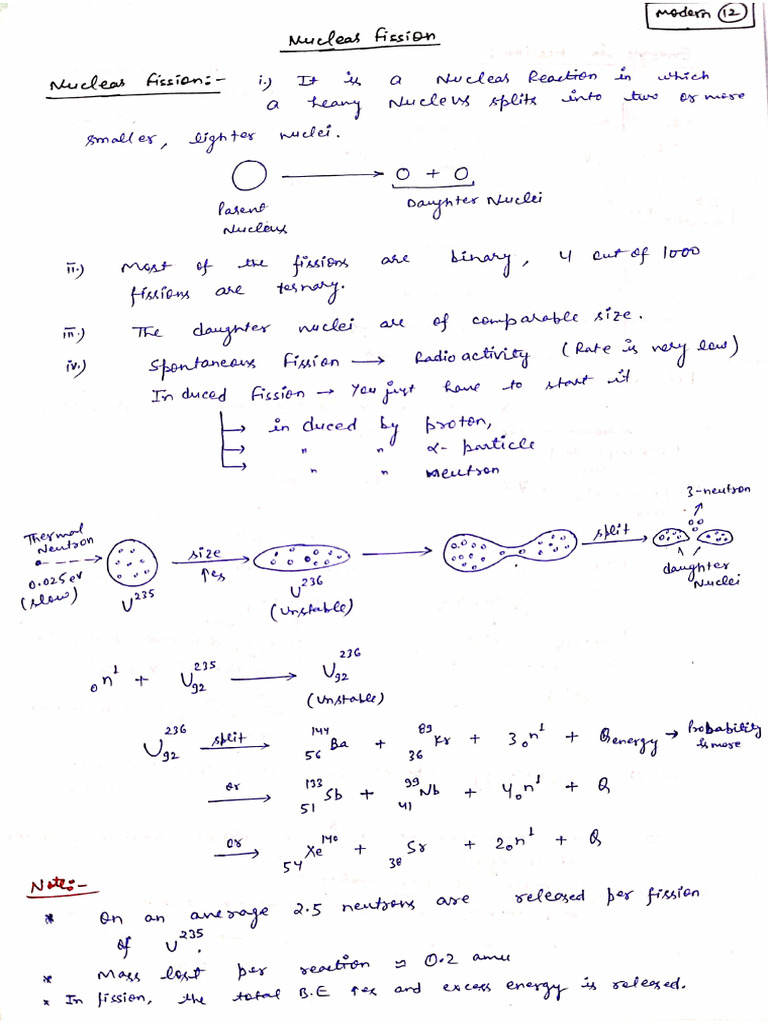 Modern 12
Nuclear Fission
Nuclear Fission:- i.) It is a Nuclear Reaction in which
a heavy Nucleus splits into two or more
smaller, lighter nuclei.
O → O + O
Parent Nucleus
Daughter Nuclei
ii.) Most of the fissions are binary, 4 out of 1000
fissions are ternary.
iii.) The daughter nuclei are of comparable size.
iv.) Spontaneous Fission → Radioactivity (Rate is very low)
Induced Fission → You just have to start it
→ induced by proton,
→ " " α-particle
→ " " neutron
3-neutron
Thermal Neutron
0.025 ev
(slow)
U²³⁵
size
↑es
U²³⁶
(Unstable)
split
daughter Nuclei
₀n¹ + U₉₂²³⁵ → U₉₂²³⁶
(Unstable)
U₉₂²³⁶ split → ¹⁴⁴₅₆Ba + ⁸⁹₃₆Kr + 3₀n¹ + Qenergy → Probability is more
or → ¹³³₅₁Sb + ⁹⁹₄₁Nb + 4₀n¹ + Q
or → ₅₄Xe¹⁴⁰ + ₃₈Sr + 2₀n¹ + Q
Note:-
* On an average 2.5 neutrons are released per fission
of U²³⁵.
* Mass lost per reaction ≈ 0.2 amu
* In fission, the total B.E ↑es and excess energy is released.